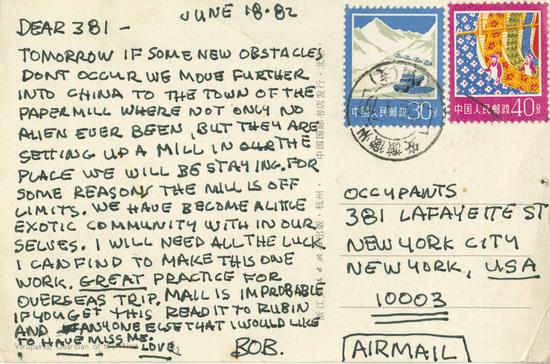 JUNE 18.82
DEAR 381 -
TOMORROW IF SOME NEW OBSTACLES
DONT OCCUR WE MOVE FURTHER
INTO CHINA TO THE TOWN OF THE
PAPERMILL WHERE NOT ONLY NO
ALIEN EVER BEEN, BUT THEY ARE
SETTING UP A MILL IN OUR THE
PLACE WE WILL BE STAYING. FOR
SOME REASON THE MILL IS OFF
LIMITS. WE HAVE BECOME A LITTLE
EXOTIC COMMUNITY WITH IN OUR
SELVES. I WILL NEED ALL THE LUCK
I CAN FIND TO MAKE THIS ONE
WORK. GREAT PRACTICE FOR
OVERSEAS TRIP. MAIL IS IMPROBABLE
IF YOU GET THIS READ IT TO RUBIN
AND ANYONE ELSE THAT I WOULD LIKE
TO HAVE MISS ME.
LOVE, BOB.
Virupaksa, Guardian of
中国人民邮政 30分
中国人民邮政 40分
OCCUPANTS
381 LAFAYETTE ST
NEW YORK CITY
NEW YORK, USA
10003
AIRMAIL